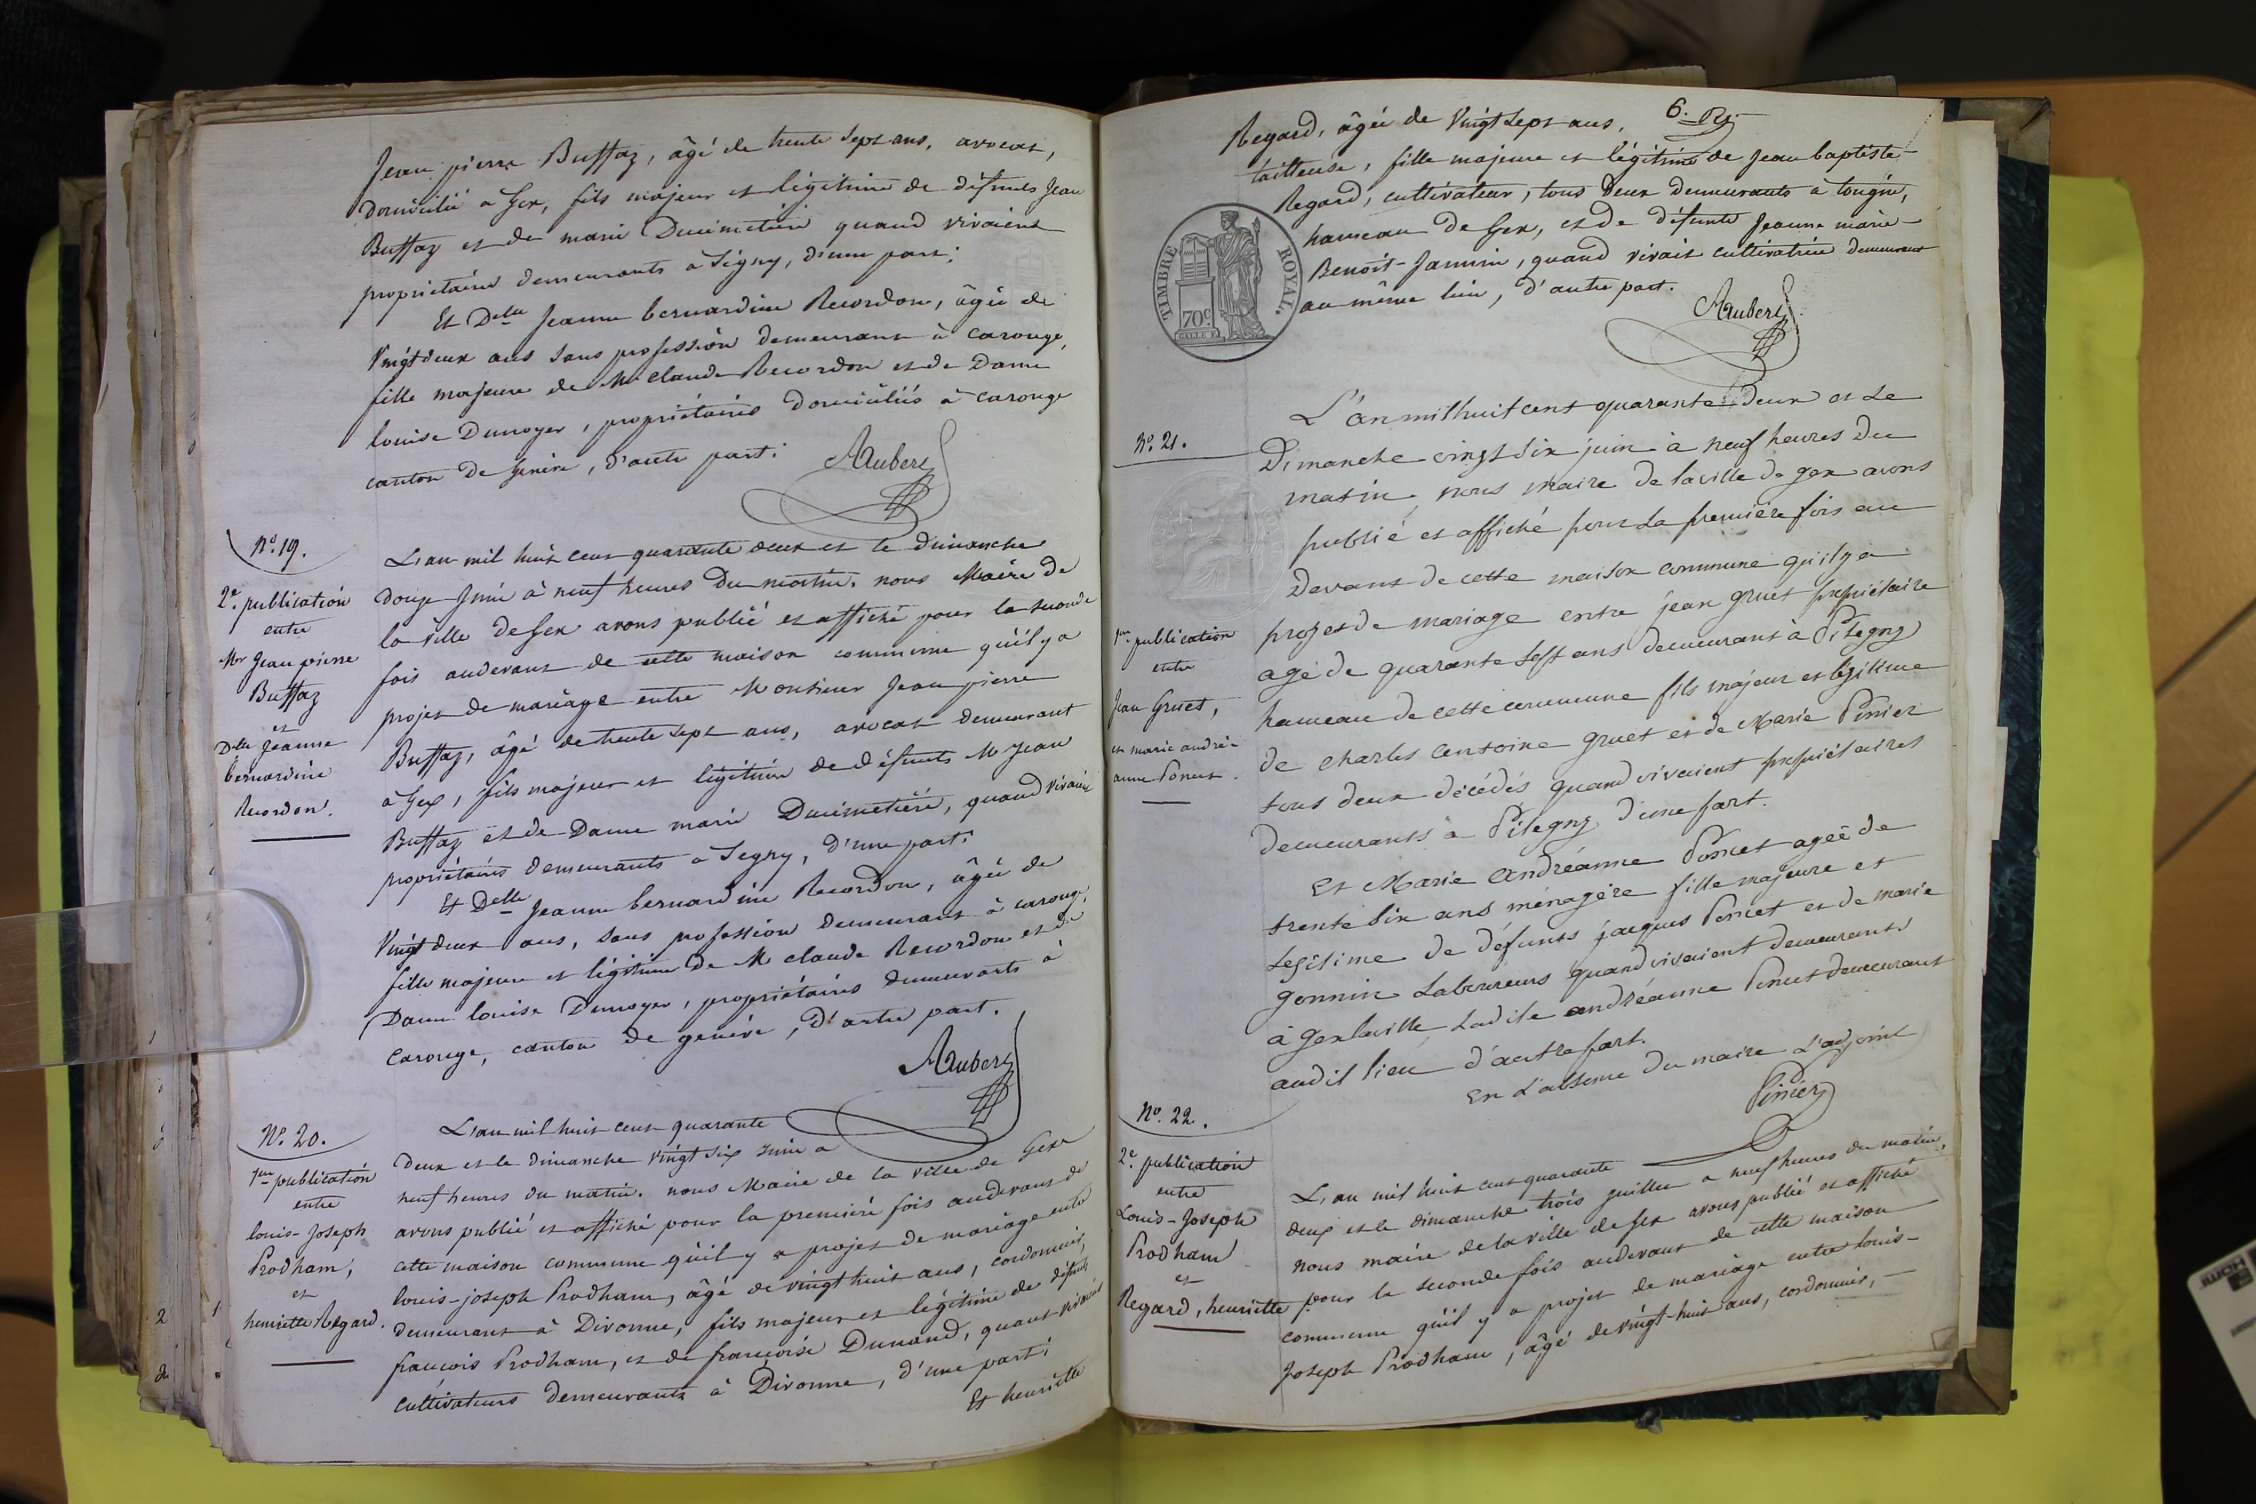 Jean pierre Buffaz, âgé de trente sept ans, avocat,
domicilié à Gex, fils majeur et légitime de défunts Jean
Buffaz et de marie Ducimetière quand vivaient
propriétaires demeurants à Segny, d'une part;
Et Delle Jeanne bernardine Recordon, âgée de
Vingt deux ans sans profession demeurant à carouge,
fille majeure de Mr Claude Recordon et de Dame
louise Dunoyer, propriétaires domiciliés à carouge
canton de Genève, d'autre part.
Aubert
No. 19.
2e. publication
entre
Mr Jean pierre
Buffaz
et
Delle Jeanne
bernardine
Recordon.
L'an mil huit cent quarante deux et le dimanche
douze Juin à neuf heures du matin. nous Maire de
la ville de Gex avons publié et affiché pour la seconde
fois audevant de cette maison commune qu'il y a
projet de mariage entre Monsieur Jean pierre
Buffaz, âgé de trente sept ans, avocat demeurant
à Gex, fils majeur et légitime de défunts M Jean
Buffaz et de Dame marie Ducimetière, quand vivaient
propriétaires demeurants à Segny, d'une part.
Et Delle Jeanne bernardine Recordon, âgée de
Vingt deux ans, sans profession demeurant à carouge,
fille majeure et légitime de M claude Recordon et de
Dame louise Dunoyer, propriétaires demeurants à
Carouge, canton de genève, d'autre part.
Aubert
No. 20.
1ère publication
entre
louis-Joseph
Prodham,
et
henriette Regard.
L'an mil huit cent quarante
deux et le dimanche vingt six Juin à
neuf heures du matin. nous Maire de la ville de Gex
avons publié et affiché pour la première fois audevant de
cette maison commune qu'il y a projet de mariage entre
louis-joseph Prodham, âgé de vingt huit ans, cordonnier,
demeurant à Divonne, fils majeur et légitime de défunts
françois Prodham, et de françoise Dunand, quand vivaient
cultivateurs demeurants à Divonne, d'une part;
Et henriette
6.
Regard, âgée de Vingt sept ans,
tailleuse, fille majeure et légitime de Jean baptiste
Regard, cultivateur, tous deux demeurants à tougin,
hameau de Gex, et de défunte Jeanne marie
Benoît-Jannin, quand vivait cultivatrice demeurant
au même lieu, d'autre part.
Aubert
TIMBRE ROYAL.
70c
No. 21.
1ère publication
entre
Jean Gruet,
et marie andrée
anne Poncet.
L'an mil huit cent quarante deux et Le
Dimanche vingt six juin à neuf heures du
matin, nous maire de la ville de gex avons
publié et affiché pour La première fois au
Devant de cette maison commune qu'il y a
projet de mariage entre jean gruet propriétaire
agé de quarante sept ans demeurant à Pitegny
hameau de cette commune fils majeur et légitime
de charles antoine gruet et de Marie Pinier
tous deux décédés quand vivaient propriétaires
demeurants à Pitegny d'une part.
Et Marie Andréanne Poncet ageé de
trente six ans ménagère fille majeure et
Legitime de défunts jacques Poncet et de marie
gonnin Laboureurs quand vivaient demeurants
à gex la ville, Ladite andréanne Poncet demeurant
audit lieu d'autre part.
En L'absence du maire L'adjoint
Pinier
No. 22.
2e. publication
entre
Louis-Joseph
Prodham
et
Regard, henriette
L'an mil huit cent quarante
deux et le dimanche trois juillet à neuf heures du matin,
nous maire de la ville de Gex avons publié et affiché
pour la seconde fois audevant de cette maison
commune qu'il y a projet de mariage entre louis-
Joseph Prodham, âgé de vingt-huit ans, cordonnier,